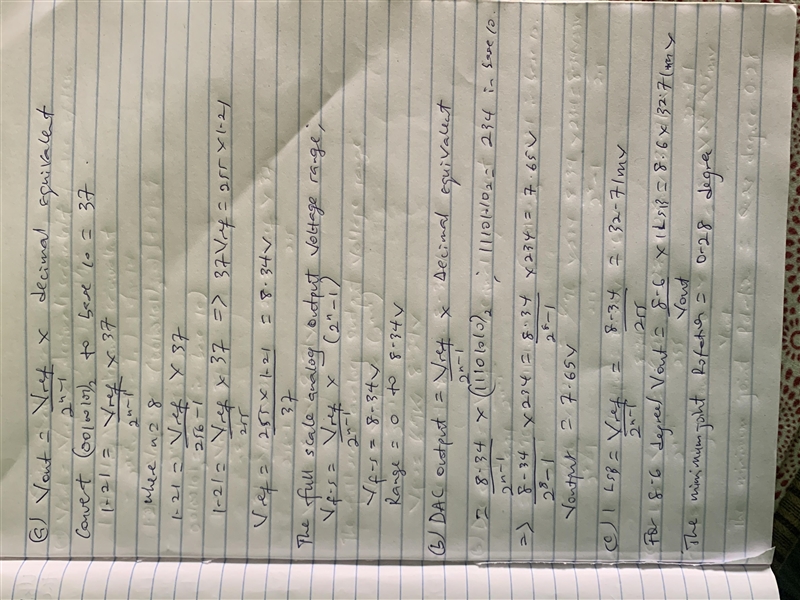 (a) Vout = Vref / 2ⁿ-1 × decimal equivalent
Convert (00100101)₂ to base 10 = 37.
1.21 = Vref / 2ⁿ-1 × 37
where n = 8
1.21 = Vref / 256-1 × 37
1.21 = Vref / 255 × 37 => 37Vref = 255 × 1.21
Vref = 255 × 1.21 / 37 = 8.34V
The full scale analog output voltage range;
Vf-s = Vref / 2ⁿ-1 × (2ⁿ-1)
Vf-s = 8.34V
Range = 0 to 8.34V
(b) DAC output = Vref / 2ⁿ-1 × Decimal equivalent
= 8.34 / 2ⁿ-1 × (11101010)₂ ; 11101010₂ = 234 in base 10.
=> 8.34 / 2⁸-1 × 234 = 8.34 / 2⁸-1 × 234 = 7.65V
Voutput = 7.65V
(c) 1 LSB = Vref / 2ⁿ-1 = 8.34 / 255 = 32.71mV
For 8.6 degree Vout = 8.6 / Vout × 1LSB = 8.6 × 32.71mV
The minimum joint Rotation = 0.28 degree